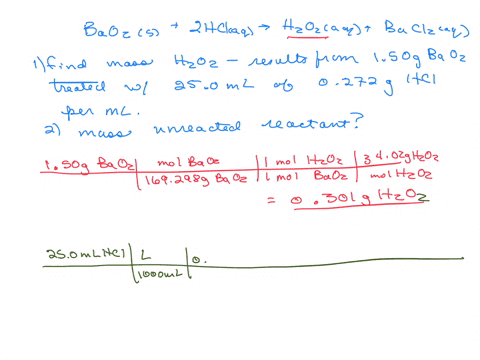 BaO₂(s) + 2HCl(aq) → H₂O₂(aq) + BaCl₂(aq)
1) find mass H₂O₂ - results from 1.50g BaO₂
treated w/ 25.0 mL of 0.272 g HCl
per mL.
2) mass unreacted reactant?
1.50g BaO₂ | mol BaO₂ | 1 mol H₂O₂ | 34.02g H₂O₂
169.298g BaO₂ | 1 mol BaO₂ | mol H₂O₂
= 0.301g H₂O₂
25.0mL HCl | L | 0.
1000mL